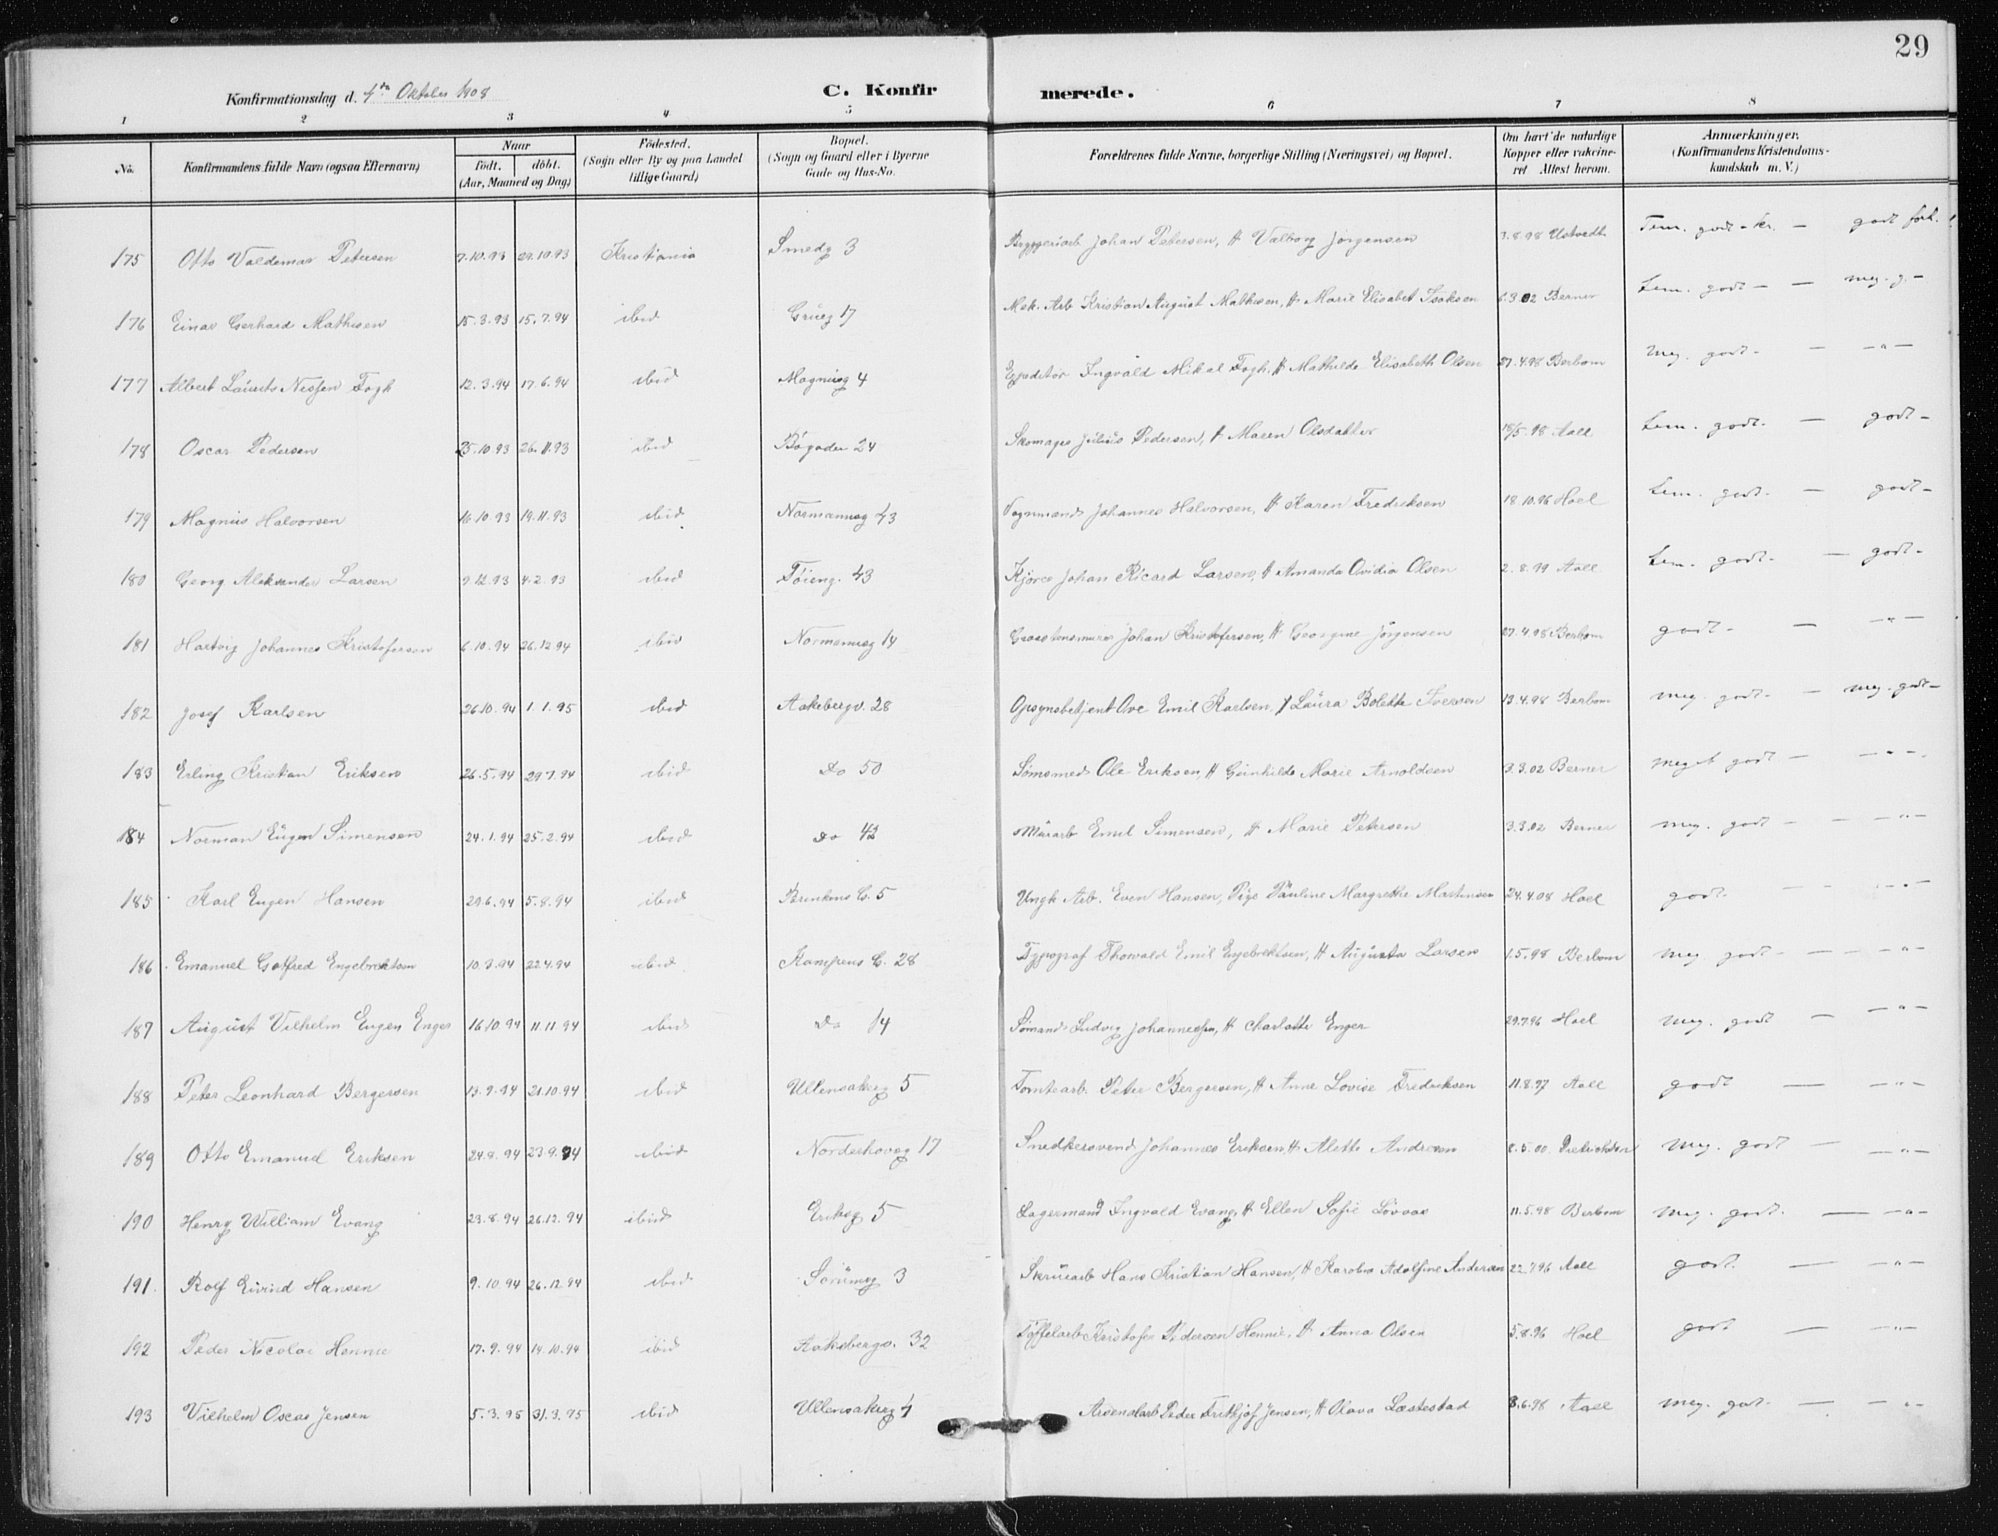 29
Konfirmationsdag d. 4de Oktober 1908 C. Konfirmerede.
1 2 3 4 5 6 7 8
No. Konfirmandens fulde Navn (ogsaa Efternavn) Naar født. døbt. (Aar, Maaned og Dag) Fødested. (Sogn eller By og paa Landet tillige Gaard) Bopæl. (Sogn og Gaard eller i Byerne Gade og Hus-No. Forældrenes fulde Navne, borgerlige Stilling (Næringsvei) og Bopæl. Om havt de naturlige Kopper eller vakcineret Attest herom. Anmærkninger. (Konfirmandens Kristendomskundskab m. V.)
175 Otto Valdemar Petersen 7.10.93 29.10.93 Kristiania Smedg 3 Bryggeriarb Johan Petersen, H Valborg Jørgensen 3.8.98 Ustvedt Tem. godt - kr. — godt forh.
176 Einar Gerhard Mathisen 15.3.93 15.7.94 ibid Grüeg 17 Mek. Arb Kristian August Mathisen, H Marie Elisabet Isaksen 6.3.02 Berner tem. godt - — meg. g. -
177 Albert Laurits Nissen Fogh 12.3.94 17.6.94 ibid Magnusg 4 Expeditør Ingvald Mikal Fogh, H Mathilde Elisabeth Olsen 27.4.98 Berbom meg. godt - — - " -
178 Oscar Pedersen 25.10.93 26.11.93 ibid Bøgaden 24 Skomager Julius Pedersen, H Maren Olsdatter 18/5.98 Aall tem. godt. — godt -
179 Magnus Halvorsen 16.10.93 19.11.93 ibid Normannsg 43 Vognmand Johannes Halvorsen, H Karen Fredriksen 18.10.96 Hoel tem. godt. — godt -
180 Georg Aleksander Larsen 9.12.93 4.2.93 ibid Tøieng. 43 Kjører Johan Ricard Larsen, H Amanda Ovidia Olsen 2.8.99 Aall tem. godt. — godt -
181 Hartvig Johannes Kristofersen 6.10.94 26.12.94 ibid Normannsg 14 Graastensmurer Johan Kristofersen, H Georgine Jørgensen 27.4.98 Berbom godt - — - " -
182 Josef Karlsen 26.10.94 1.1.95 ibid Aakebergv. 28 Opsynsbetjent Ove Emil Karlsen, H Laura Bolette Iversen 13.4.98 Berbom meg. godt - — meg. godt -
183 Erling Kristian Eriksen 26.5.94 29.7.94 ibid Do 50 Sømsmed Ole Eriksen, H Gunhilde Marie Arnoldsen 3.3.02 Berner meget godt — - " -
184 Norman Eugen Simensen 24.1.94 25.2.94 ibid Do 42 Murarb Emil Simensen, H Marie Petersen 3.3.02 Berner meg. godt — - " -
185 Karl Eugen Hansen 29.6.94 5.8.94 ibid Brinkens G. 5 Ungk Arb. Even Hansen, Pige Pauline Margrethe Martinsen 24.4.08 Hoel godt. — - " -
186 Emanuel Gotfred Engebrektsen 10.3.94 22.4.94 ibid Kampens G. 28 Typograf Thorvald Emil Engebrektsen, H Augusta Larsen 1.5.98 Berbom meg. godt - — - " -
187 August Vilhelm Eugen Enger 16.10.94 11.11.94 ibid Do 14 Sømand Ludvig Johannessen, H Charlotte Enger 29.7.96 Hoel meg. godt — - " -
188 Peter Leonhard Bergersen 13.9.94 21.10.94 ibid Ullensakerg 5 Tomtearb. Peter Bergersen, H Anne Lovise Fredriksen 11.8.97 Aall godt — - " -
189 Otto Emanuel Eriksen 24.8.94 23.9.94 ibid Norderhovsg 17 Snedkersvend Johannes Eriksen, H Aleth Andresen 8.5.00 Dietrichson meg. godt — - " -
190 Henry William Evang 23.8.94 26.12.94 ibid Eriksg 5 Lagermand Ingvald Evang, H Ellen Sofie Løvaas 11.5.98 Berbom meg. godt. — - " -
191. Rolf Eivind Hansen 9.10.94 26.12.94 ibid Sørumg 3 Skruearb Hans Kristian Hansen, H Karoline Adolfine Andersen 22.7.96 Aall godt. — - " -
192 Peder Nicolai Hennie 17.9.94 14.10.94 ibid Aakebergv. 32 Tøffelarb Kristofer Pedersen Hennie, H Anna Olsen 5.8.96 Hoel godt — - " -
193 Vilhelm Oscar Jensen 5.3.95 31.3.95 ibid Ullensakerg 4 Arsenalarb Peder Fritkjof Jensen, H Olava Læstestad 8.6.98 Aall meg. godt. — - " -